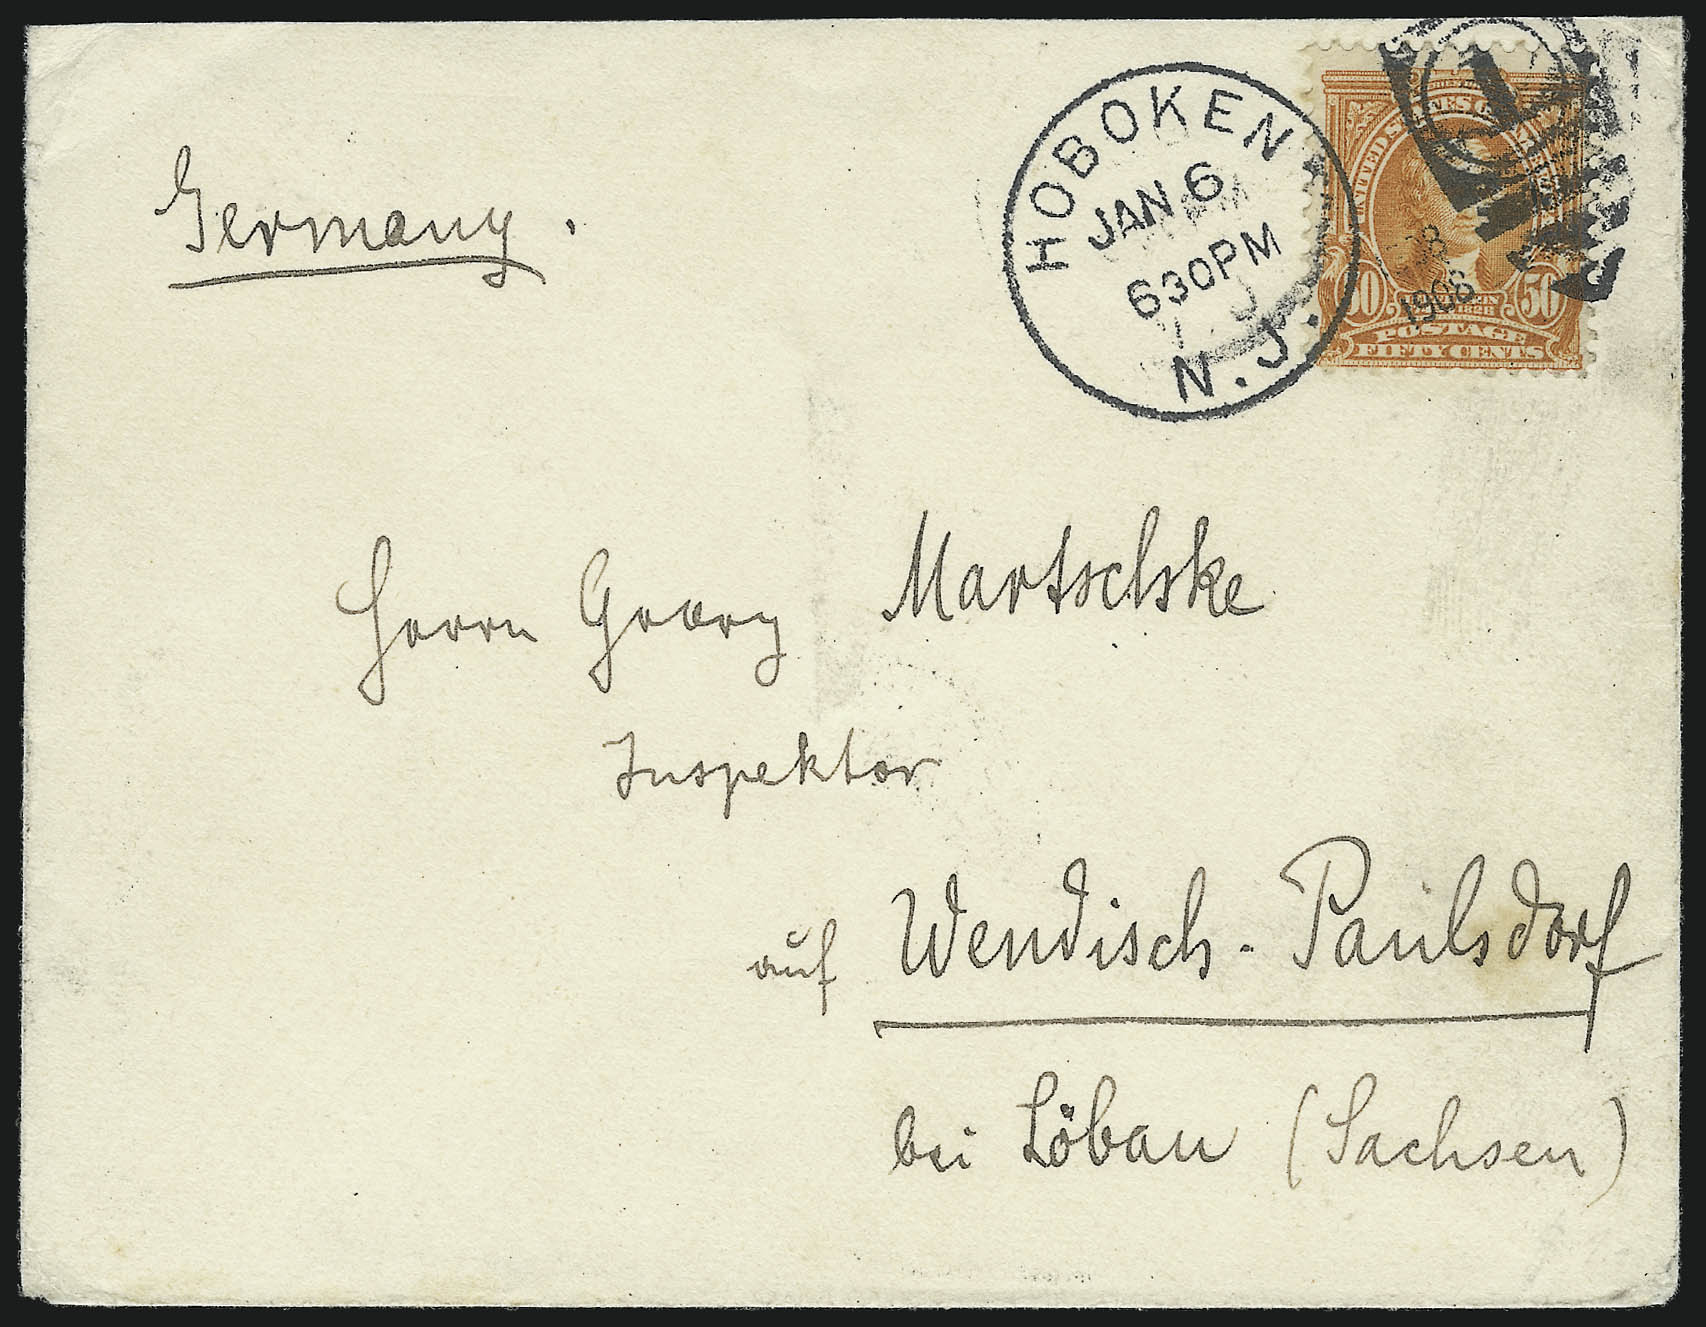 Germany.
HOBOKEN
JAN 6
630PM
N.J.
1
1908
UNITED STATES OF
50 50
JEFFERSON
1826
POSTAGE
FIFTY CENTS
Herrn Georg Martschke
Inspektor
auf Wendisch-Paulsdorf
bei Löbau (Sachsen)